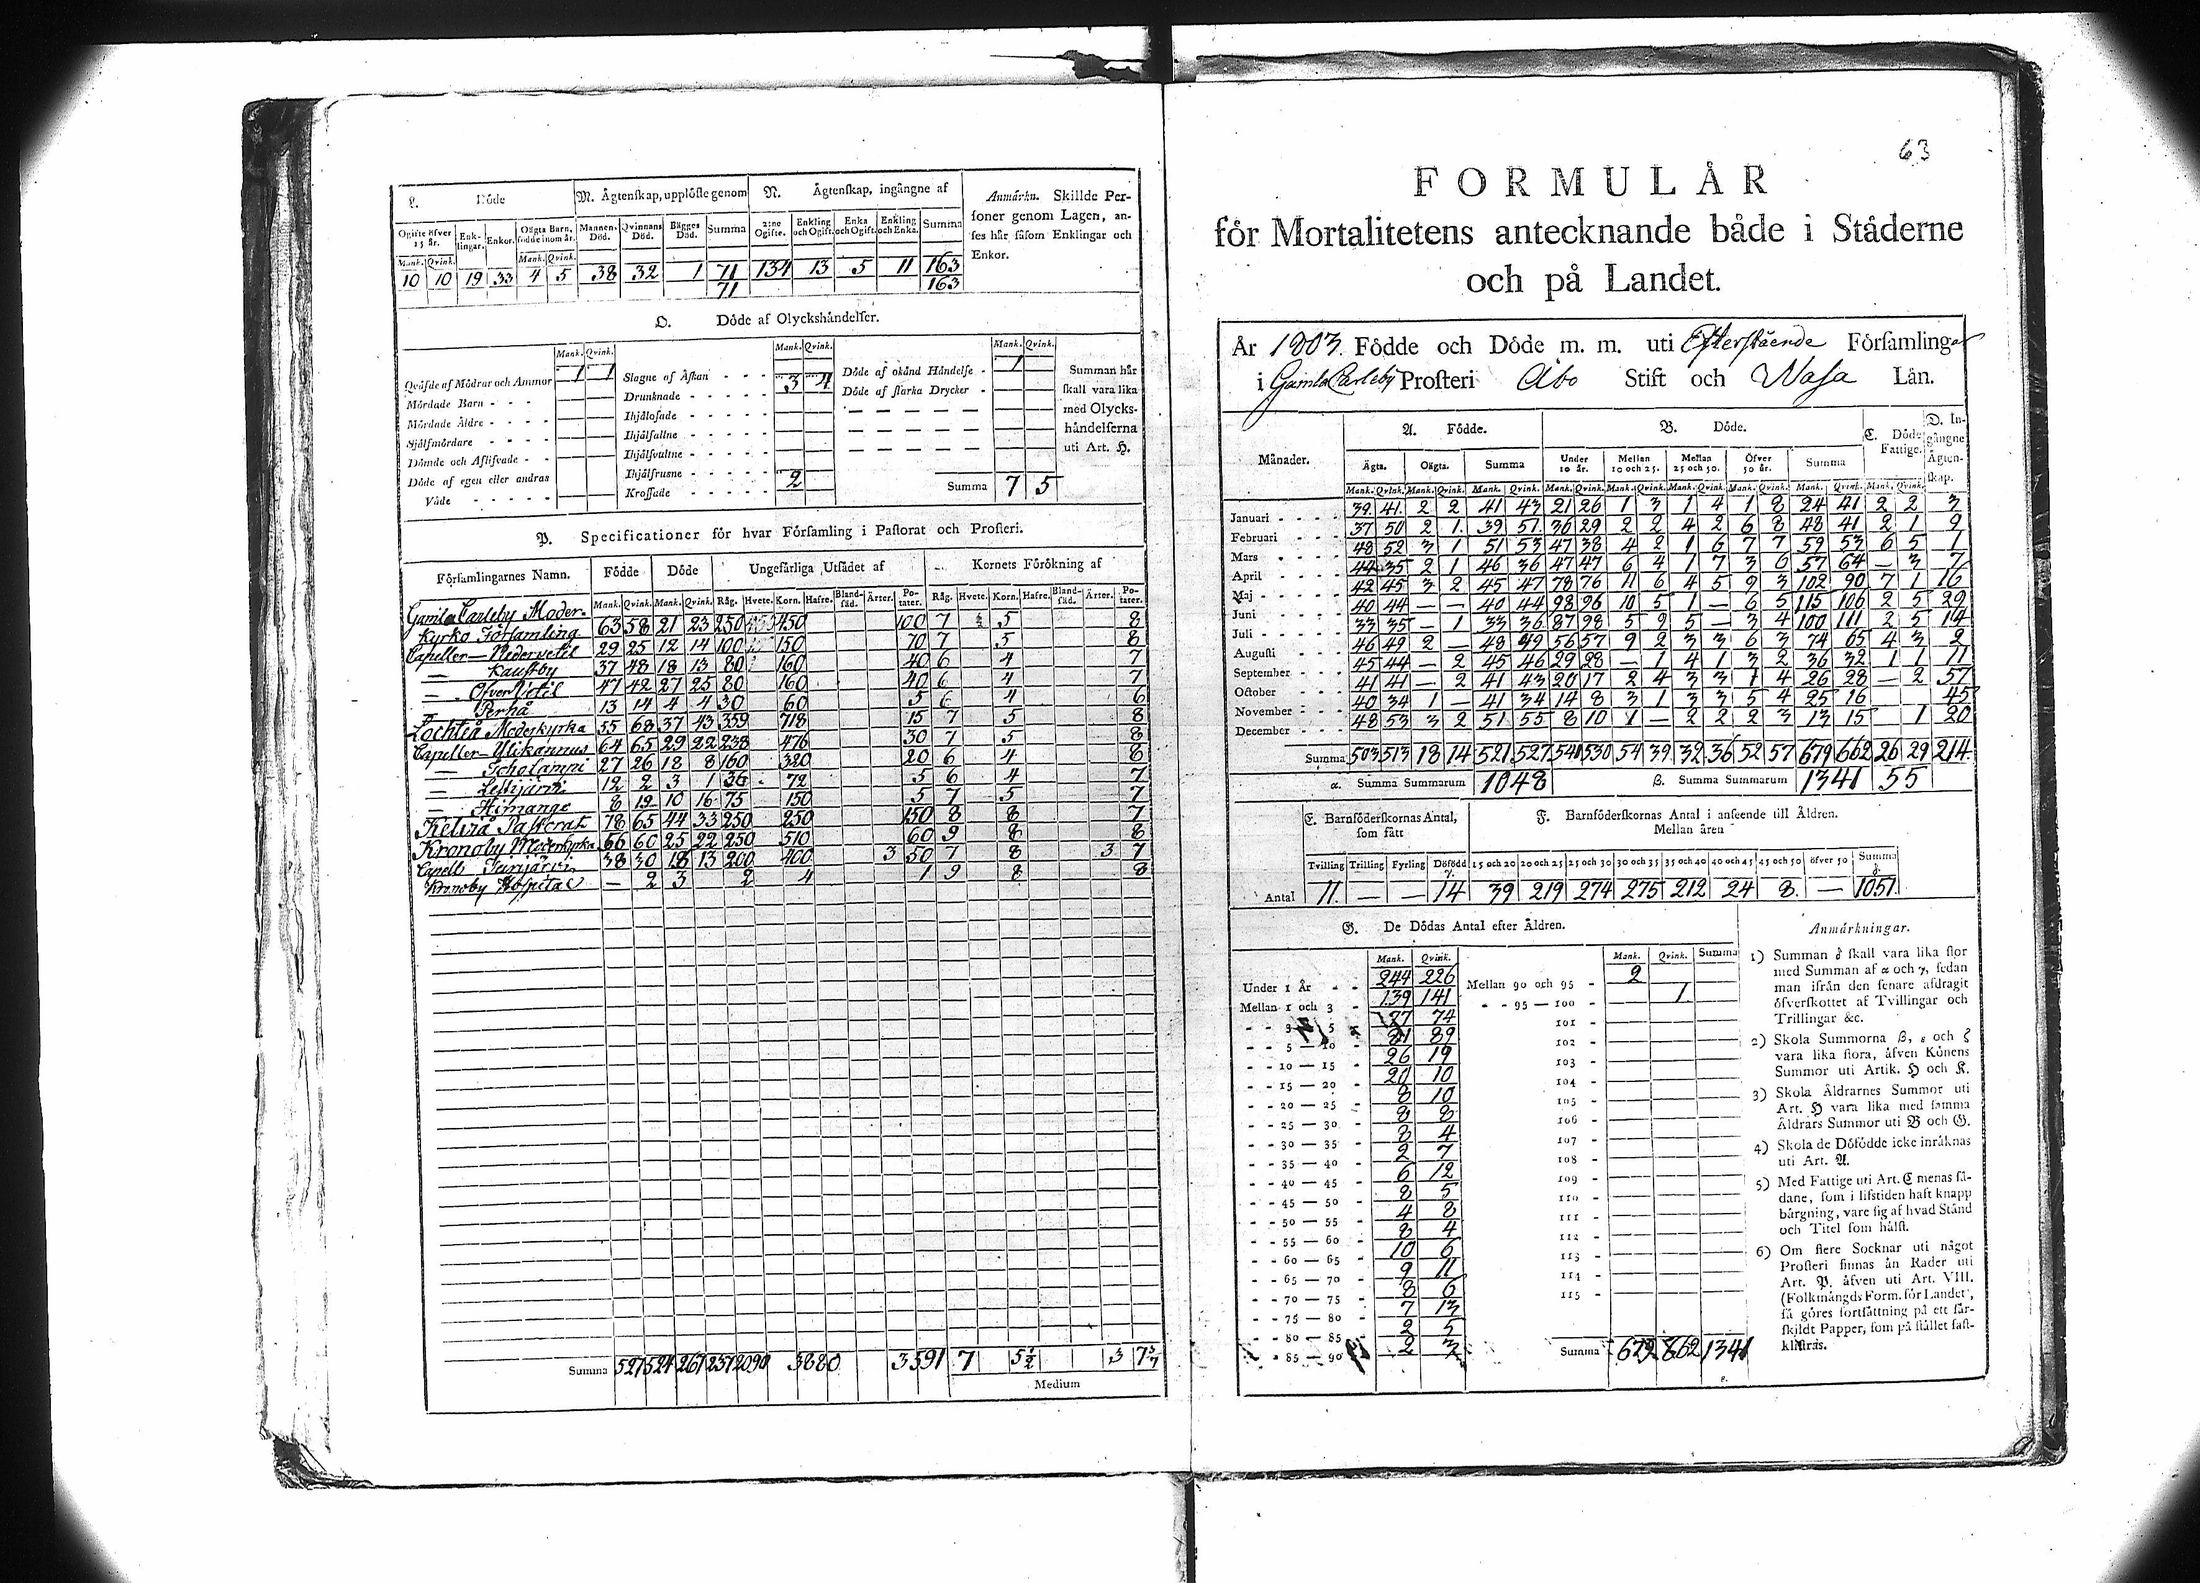 L. Döde
M. Ägtenskap, upplöste genom
N. Ägtenskap, ingångne af
Ogifte öfver 15 år. Enk-lingar. Enkor. Oägta Barn, födde inom år. Mannens Död. Qvinnans Död. Bägges Död. Summa 2:ne Ogifte. Enkling och Ogift. Enka och Ogift. Enkling och Enka. Summa
Mank. Qvink. Mank. Qvink.
10 10 19 33 4 5 38 32 1 71 134 13 5 11 163
71 163
Anmärkn. Skillde Per-
soner genom Lagen, an-
ses här, såsom Enklingar och
Enkor.
O. Döde af Olyckshändelser.
Mank. Qvink. Mank. Qvink. Mank. Qvink.
Qväfde af Mödrar och Ammor 1 1
Mördade Barn
Mördade Äldre
Sjelfmördare
Dömde och Aflifvade
Döde af egen eller andras
Våde
Slagne af Åskan
Drunknade 3 4
Ihjälosade
Ihjälfallne
Ihjälsvultne
Ihjälfrusne
Krossade 2
Döde af okänd Händelse 1
Döde af starka Drycker
Summa 7 5
Summan här
skall vara lika
med Olycks-
händelserna
uti Art. H.
P. Specificationer för hvar Församling i Pastorat och Prosteri.
Församlingarnes Namn. Födde Döde Ungefärliga Utsädet af Kornets Förökning af
Mank. Qvink. Mank. Qvink. Råg. Hvete. Korn. Hafre. Bland-säd. Ärter. Po-tater. Råg. Hvete. Korn. Hafre. Bland-säd. Ärter. Po-tater.
Gamla Carleby Moder-
Kyrko Församling 63 58 21 23 250 450 100 7 5 8
Capeller — Nedervetil 29 25 12 14 100 150 70 7 5 8
— Kaustby 37 48 18 13 80 160 40 6 4 7
— Öfver Vetil 47 42 27 25 80 160 40 6 4 7
— Perhå 13 14 4 4 30 60 5 6 4 6
Lochteå Moderkyrka 55 68 37 43 359 718 15 7 5 8
Capeller — Ylikannus 64 65 29 22 238 476 30 7 5 8
27 26 18 8 160 320 20 6 4 8
— Lestijärvi 12 2 3 1 36 72 5 6 4 7
— Himange 8 19 10 16 75 150 5 7 5 7
Kelviå Pastorat 78 65 44 33 250 250 150 8 8 7
Kronoby Moderkyrka 56 60 25 22 250 510 60 9 8 8
Capell 38 30 18 13 200 400 3 50 7 8 3 7
Kronoby Hospital — 2 3 2 4 1 9 8 8
Summa 527 524 267 237 2090 3880 3 591 7 5½ 3
Medium
63
FORMULÄR
för Mortalitetens antecknande både i Städerne
och på Landet.
År 1803. Födde och Döde m. m. uti Efterstående Församlingar
i Gamla Carleby Prosteri Åbo Stift och Wasa Län.
Månader. A. Födde. B. Döde. C. Döde Fattige. D. In-gångne Ägten-skap.
Ägta. Oägta. Summa Under 10 år. Mellan 10 och 25. Mellan 25 och 50. Öfver 50 år. Summa
Mank. Qvink. Mank. Qvink. Mank. Qvink. Mank. Qvink. Mank. Qvink. Mank. Qvink. Mank. Qvink. Mank. Qvink. Mank. Qvink.
Januari 39 41 2 2 41 43 21 26 1 3 1 4 1 8 24 41 2 2 3
Februari 37 50 2 1 39 51 36 29 2 2 4 2 6 8 48 41 2 1 9
Mars 48 52 3 1 51 53 47 38 4 2 1 6 7 7 59 53 6 5 1
April 44 35 2 1 46 36 47 47 6 4 1 7 3 6 57 64 — 3 7
Maj 42 45 3 2 45 47 78 76 11 6 4 5 9 3 102 90 7 1 16
Juni 40 44 — — 40 44 98 96 10 5 1 — 6 5 115 106 2 5 29
Juli 33 35 — 1 33 36 87 98 5 9 5 — 3 4 100 111 2 5 14
Augusti 46 49 2 — 48 49 56 57 9 2 3 3 6 3 74 65 4 3 2
September 45 44 — 2 45 46 29 28 — 1 4 1 3 2 36 32 1 1 11
October 41 41 — 2 41 43 20 17 2 4 3 3 1 4 26 28 — 2 57
November 40 34 1 — 41 34 14 8 3 1 3 3 5 4 25 16 45
December 48 53 3 2 51 55 8 10 1 — 2 2 2 3 13 15 1 20
Summa 503 513 18 14 521 527 541 530 54 39 32 36 52 57 679 662 26 29 214
α. Summa Summarum 1048 β. Summa Summarum 1341 55
E. Barnföderskornas Antal, som fått
F. Barnföderskornas Antal i anseende till Åldren.
Mellan åren
Tvilling Trilling Fyrling Dödfödd γ. 15 och 20 20 och 25 25 och 30 30 och 35 35 och 40 40 och 45 45 och 50 öfver 50 Summa δ.
Antal 11 — — 14 39 219 274 275 212 24 8 — 1051
G. De Dödas Antal efter Åldren.
Mank. Qvink. Mank. Qvink. Summa
Under 1 År 244 226
Mellan 1 och 3 139 141
3 — 5 77 74
5 — 10 81 89
10 — 15 26 19
15 — 20 20 10
20 — 25 8 10
25 — 30 8 8
30 — 35 8 4
35 — 40 2 7
40 — 45 6 12
45 — 50 8 5
50 — 55 4 8
55 — 60 8 4
60 — 65 10 6
65 — 70 9 11
70 — 75 8 6
75 — 80 7 13
80 — 85 2 5
85 — 90 2 3
Mellan 90 och 95 2
95 — 100 1
101
102
103
104
105
106
107
108
109
110
111
112
113
114
115
Summa 679 662 1341
ε.
Anmärkningar.
1) Summan δ skall vara lika stor
med Summan af α och γ, sedan
man ifrån den senare afdragit
öfverskottet af Tvillingar och
Trillingar &c.
2) Skola Summorna β, ε och ζ
vara lika stora, äfven Könens
Summor uti Artik. H och K.
3) Skola Åldrarnes Summor uti
Art. H vara lika med samma
Åldrars Summor uti B och G.
4) Skola de Döfödde icke inräknas
uti Art. A.
5) Med Fattige uti Art. C menas så-
dane, som i lifstiden haft knapp
bärgning, vare sig af hvad Stånd
och Titel som hälst.
6) Om flere Socknar uti något
Prosteri finnas än Rader uti
Art. P. äfven uti Art. VIII.
(Folkmängds Form. för Landet),
så göres fortsättning på ett sär-
skildt Papper, som på stället fast-
klistras.